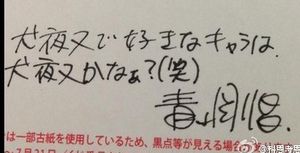 犬夜叉で好きなキャラは.
犬夜叉かなぁ?(笑)
青山剛昌
は一部古紙を使用しているため、黒点等が見える場合